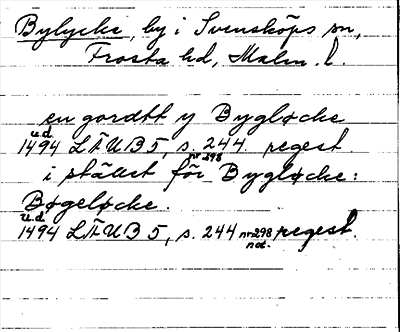 Bylycke, by i Svensköps sn,
Frosta hd, Malm. l.
en gordtt y Bygløcke
u.d.
1494 LÄUB 5, s. 244. regest.
nr 298
i stället för Bygløcke:
Bøgeløcke.
u.d.
1494 LÄUB 5, s. 244 nr 298 regest.
not.